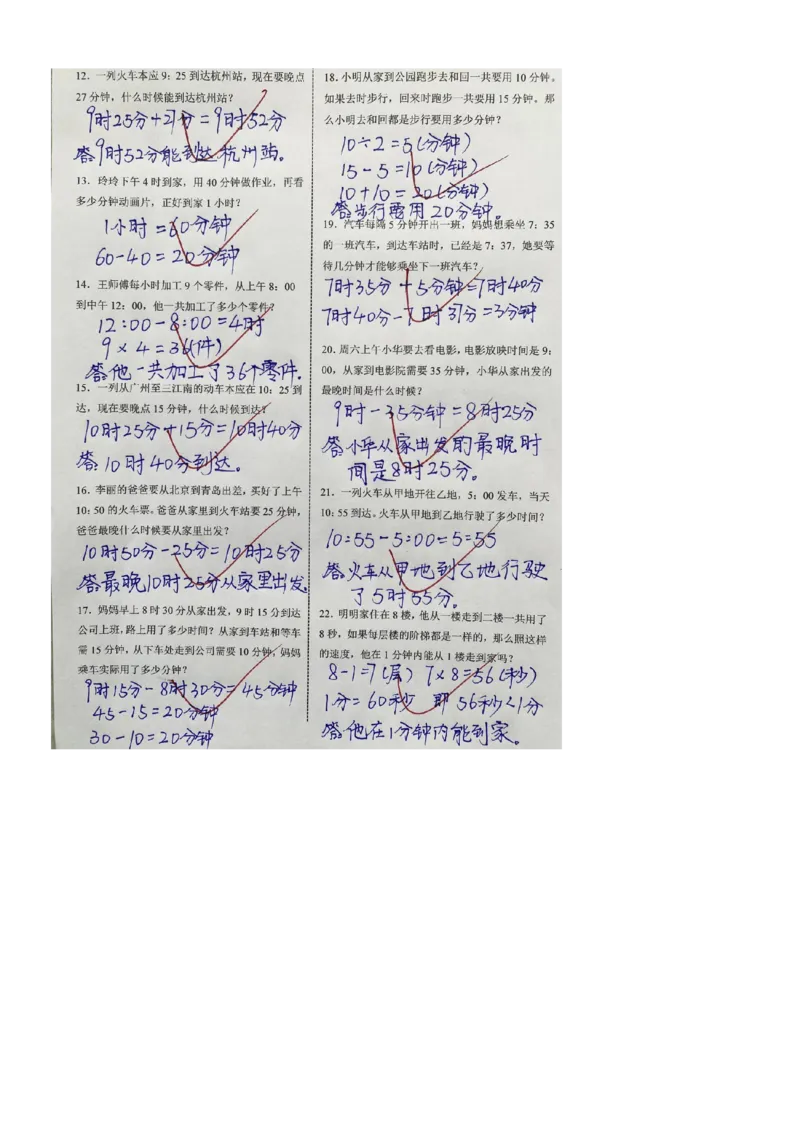 12．一列火车本应9：25到达杭州站，现在要晚点
27分钟，什么时候能到达杭州站？
9时25分+27分=9时52分
答：9时52分能到达杭州站。
13．玲玲下午4时到家，用40分钟做作业，再看
多少分钟动画片，正好到家1小时？
1小时=60分钟
60-40=20分钟
14．王师傅每小时加工9个零件，从上午8：00
到中午12：00，他一共加工了多少个零件？
12:00-8:00=4时
9×4=36(件)
答：他一共加工了36个零件．
15．一列从广州至三江南的动车本应在10：25到
达，现在要晚点15分钟，什么时候到达？
10时25分+15分=10时40分
答：10时40分到达。
16．李丽的爸爸要从北京到青岛出差，买好了上午
10：50的火车票。爸爸从家里到火车站要25分钟，
爸爸最晚什么时候要从家里出发？
10时50分-25分=10时25分
答：最晚10时25分从家里出发．
17．妈妈早上8时30分从家出发，9时15分到达
公司上班，路上用了多少时间？从家到车站和等车
需15分钟，从下车处走到公司需要10分钟，妈妈
乘车实际用了多少分钟？
9时15分-8时30分=45分钟
45-15=20分钟
30-10=20分钟
18．小明从家到公园跑步去和回一共要用10分钟。
如果去时步行，回来时跑步一共要用15分钟。那
么小明去和回都是步行要用多少分钟？
10÷2=5(分钟)
15-5=10(分钟)
10+10=20(分钟)
答：步行要用20分钟。
19．汽车每隔5分钟开出一班，妈妈想乘坐7：35
的一班汽车，到达车站时，已经是7：37，她要等
待几分钟才能够乘坐下一班汽车？
7时35分+5分钟=7时40分
7时40分-7时37分=3分钟
20．周六上午小华要去看电影，电影放映时间是9：
00，从家到电影院需要35分钟，小华从家出发的
最晚时间是什么时候？
9时-35分钟=8时25分
答：小华从家出发的最晚时
间是8时25分。
21．一列火车从甲地开往乙地，5：00发车，当天
10：55到达。火车从甲地到乙地行驶了多少时间？
10:55-5:00=5:55
答：火车从甲地到乙地行驶
了5时55分。
22．明明家住在8楼，他从一楼走到二楼一共用了
8秒，如果每层楼的阶梯都是一样的，那么照这样
的速度，他在1分钟内能从1楼走到家吗？
8-1=7(层) 7×8=56(秒)
1分=60秒 即 56秒<1分
答：他在1分钟内能到家。